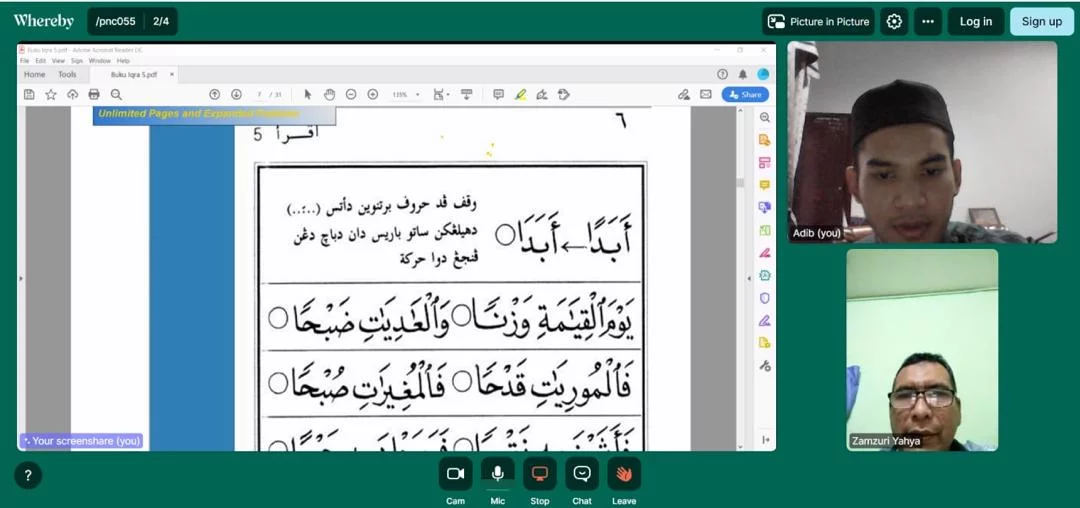 Whereby
/pnc055 2/4
Picture in Picture
Log in
Sign up
Buku Iqra 5.pdf - Adobe Acrobat Reader DC
File Edit View Sign Window Help
Home Tools Buku Iqra 5.pdf ×
7 / 31
135%
Share
Unlimited Pages and Expanded
٦
اقـرأ 5
أَبَدًا ← أَبَدَا
وقف ڤد حروف برتنوين دأتس
دهيلڠكن ساتو باريس دان دباچ دڠن
ڤنجڠ دوا حركة
يَوْمَ ٱلْقِيَٰمَةِ وَزْنًا وَٱلْعَٰدِيَٰتِ ضَبْحًا
فَٱلْمُورِيَٰتِ قَدْحًا فَٱلْمُغِيرَٰتِ صُبْحًا
Your screenshare (you)
Adib (you)
Zamzuri Yahya
?
Cam
Mic
Stop
Chat
Leave